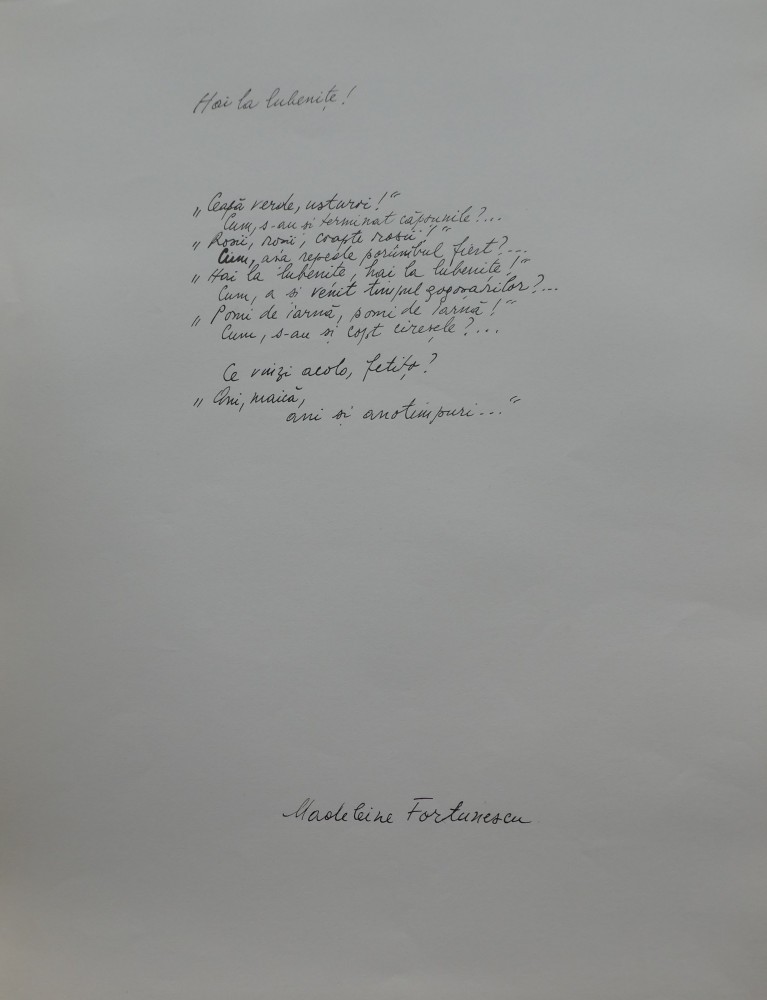 Hai la lubenițe!
„Ceapă verde, usturoi!“
Cum, s-au și terminat căpșunile?...
„Roșii, roșii, coapte roșii!“
Cum, așa repede porumbul fiert?...
„Hai la lubenițe, hai la lubenițe!“
Cum, a și venit timpul gogoșarilor?...
„Pomi de iarnă, pomi de iarnă!“
Cum, s-au și copt cireșele?...
Ce vinzi acolo, fetițo?
„Ani, maică,
ani și anotimpuri...“
Madeleine Fortunescu